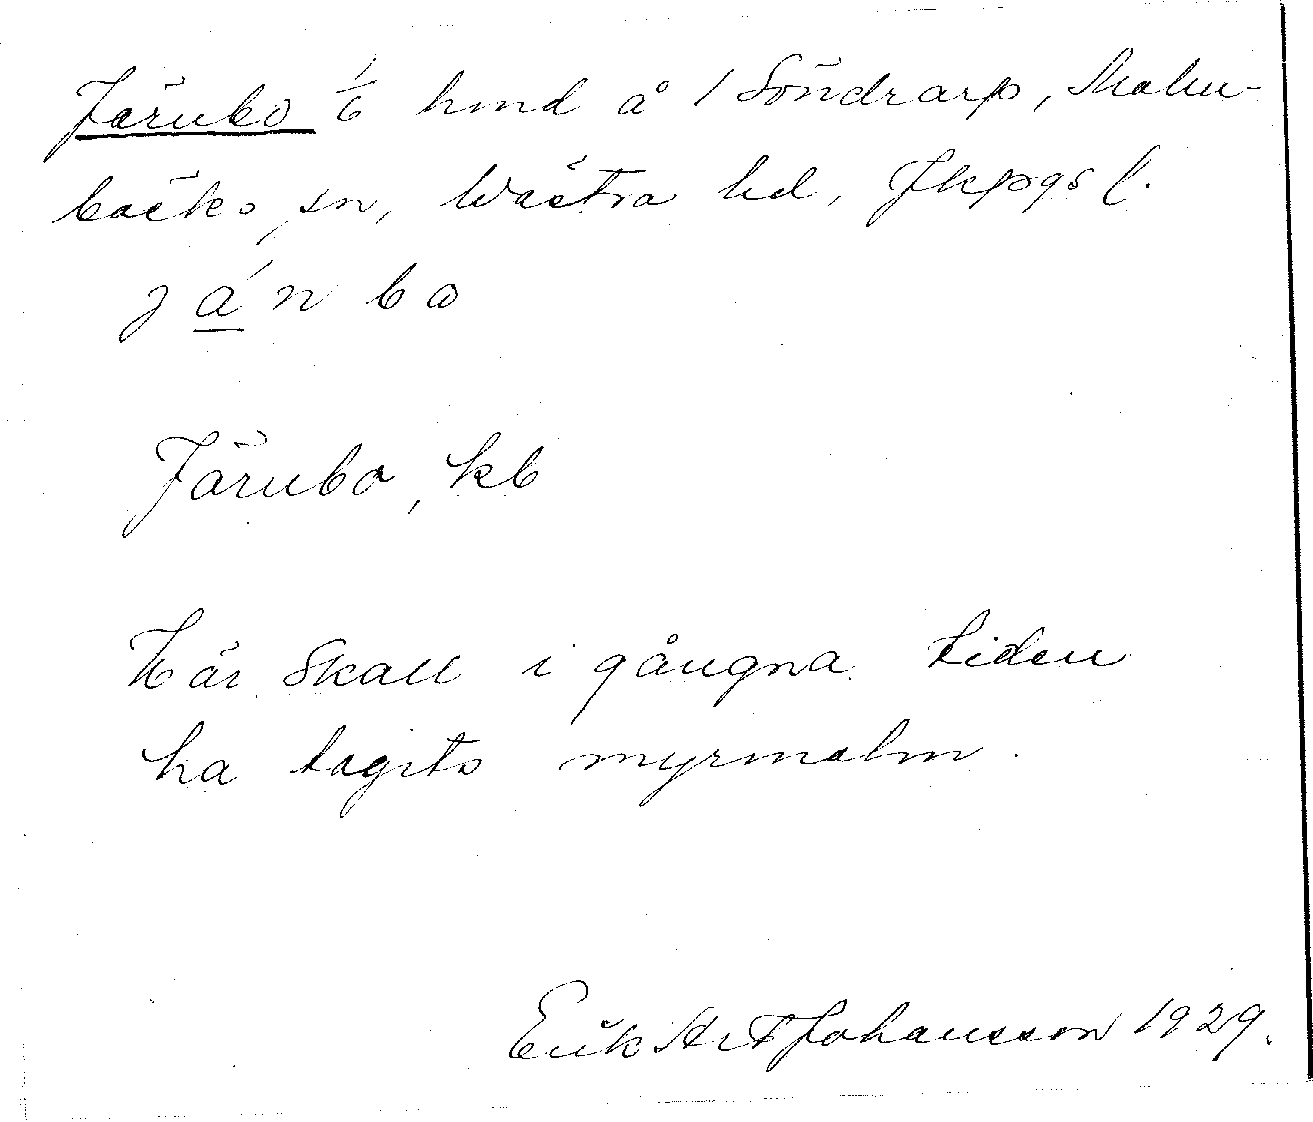 Järnbo 1/6 hmd å 1 Söndrarp, Malm-
bäcks sn, Wästra hd, Jkpgs l.
j a ́ n b o
Järnbo, kb
Här skall i gångna tiden
ha tagits myrmalm.
Erik Johansson 1929.